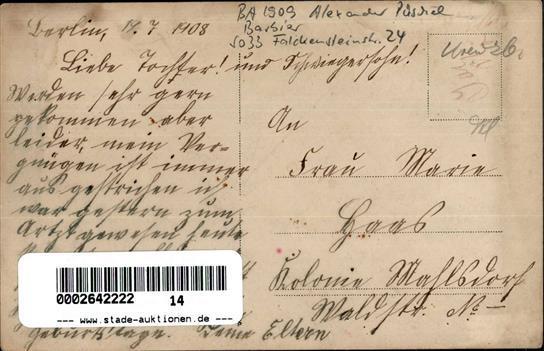 Berlin, 17. 7 1908
BA 1909 Alexander Püschel
Barbier
5033 Falckensteinstr. 24
Liebe Tochter! und Schwiegersohn!
Werden sehr gern
gekommen aber
leider, mein Ver-
gnügen ist immer
aus gestrichen ich
war gestern zum
Artzt gewesen heute
Geburtstage. Deine Eltern
An
Frau Marie
Haas
Kolonie Mahlsdorf
Waldstr. No –
0002642222 14
--- www.stade-auktionen.de ---